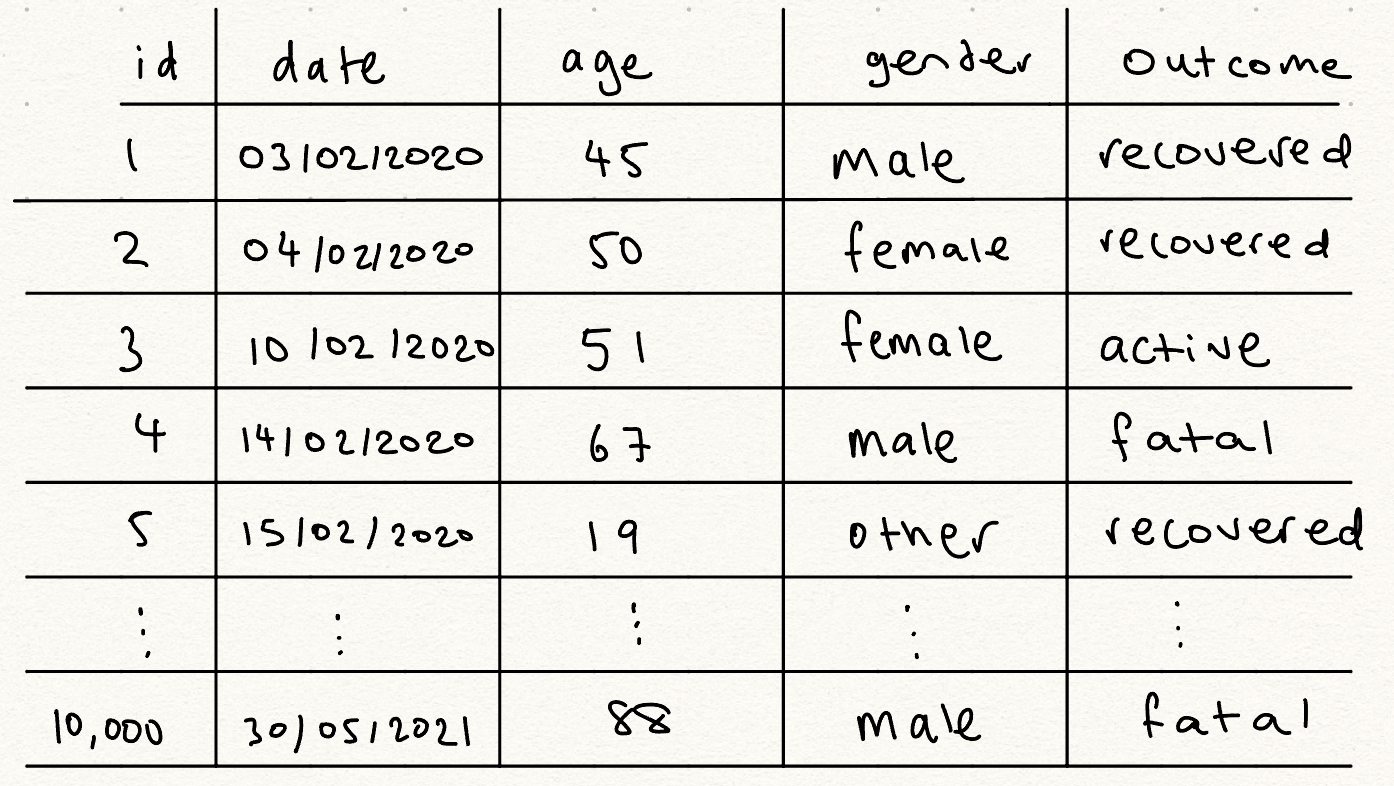 id date age gender outcome
1 03/02/2020 45 male recovered
2 04/02/2020 50 female recovered
3 10/02/2020 51 female active
4 14/02/2020 67 male fatal
5 15/02/2020 19 other recovered
⋮ ⋮ ⋮ ⋮ ⋮
10,000 30/05/2021 88 male fatal